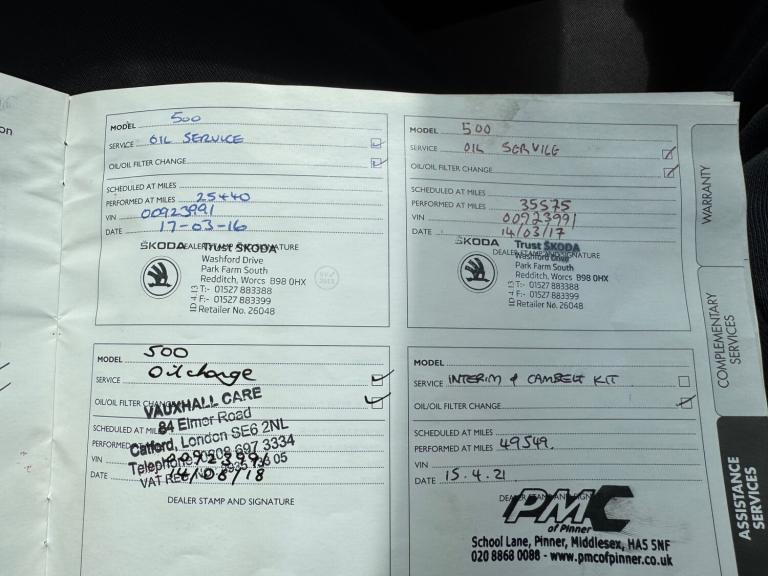 on
MODEL 500
SERVICE OIL SERVICE
OIL/OIL FILTER CHANGE
SCHEDULED AT MILES
PERFORMED AT MILES 25440
VIN 00923991
DATE 17-03-16
DEALER STAMP AND SIGNATURE
ŠKODA Trust ŠKODA
Washford Drive
Park Farm South
Redditch, Worcs B98 0HX
T:- 01527 883388
F:- 01527 883399
Retailer No. 26048
ID 4.13
MODEL 500
SERVICE OIL SERVICE
OIL/OIL FILTER CHANGE
SCHEDULED AT MILES
PERFORMED AT MILES 35575
VIN 00923991
DATE 14/03/17
DEALER STAMP AND SIGNATURE
ŠKODA Trust ŠKODA
Washford Drive
Park Farm South
Redditch, Worcs B98 0HX
T:- 01527 883388
F:- 01527 883399
Retailer No. 26048
MODEL 500
SERVICE Oil change
OIL/OIL FILTER CHANGE
SCHEDULED AT MILES
PERFORMED
VIN
DATE 14/08/18
VAUXHALL CARE
84 Elmer Road
Catford, London SE6 2NL
Telephone: 0208 697 3334
VAT REG No.
DEALER STAMP AND SIGNATURE
MODEL
SERVICE INTERIM & CAMBELT KIT
OIL/OIL FILTER CHANGE
SCHEDULED AT MILES
PERFORMED AT MILES 49549
VIN
DATE 15.4.21
DEALER STAMP AND SIGNATURE
PMC
of Pinner
School Lane, Pinner, Middlesex, HA5 5NF
020 8868 0088 - www.pmcofpinner.co.uk
WARRANTY
COMPLEMENTARY
SERVICES
ASSISTANCE
SERVICES